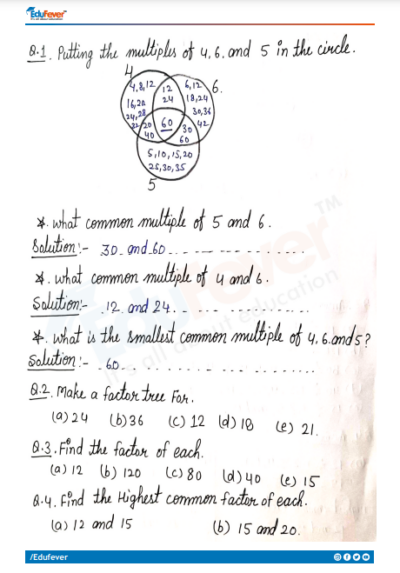 EduFever
Q.1. Putting the multiples of 4, 6. and 5 in the circle.
4
6.
4,8,12
12
24
6,12
18,24
30,36
42
16,20
24,28
20
40
60
30
60
5,10,15,20
25,30,35
5
*. what common multiple of 5 and 6.
Solution:- 30 and 60
*. what common multiple of 4 and 6.
Solution:- 12 and 24
*. what is the smallest common multiple of 4, 6. and 5?
Solution:- 60
Q.2. Make a factor tree for.
(a) 24 (b) 36 (c) 12 (d) 18 (e) 21.
Q.3. Find the factor of each.
(a) 12 (b) 120 (c) 80 (d) 40 (e) 15
Q.4. Find the Highest common factor of each.
(a) 12 and 15 (b) 15 and 20.
EduFever
all about education
TM
/Edufever